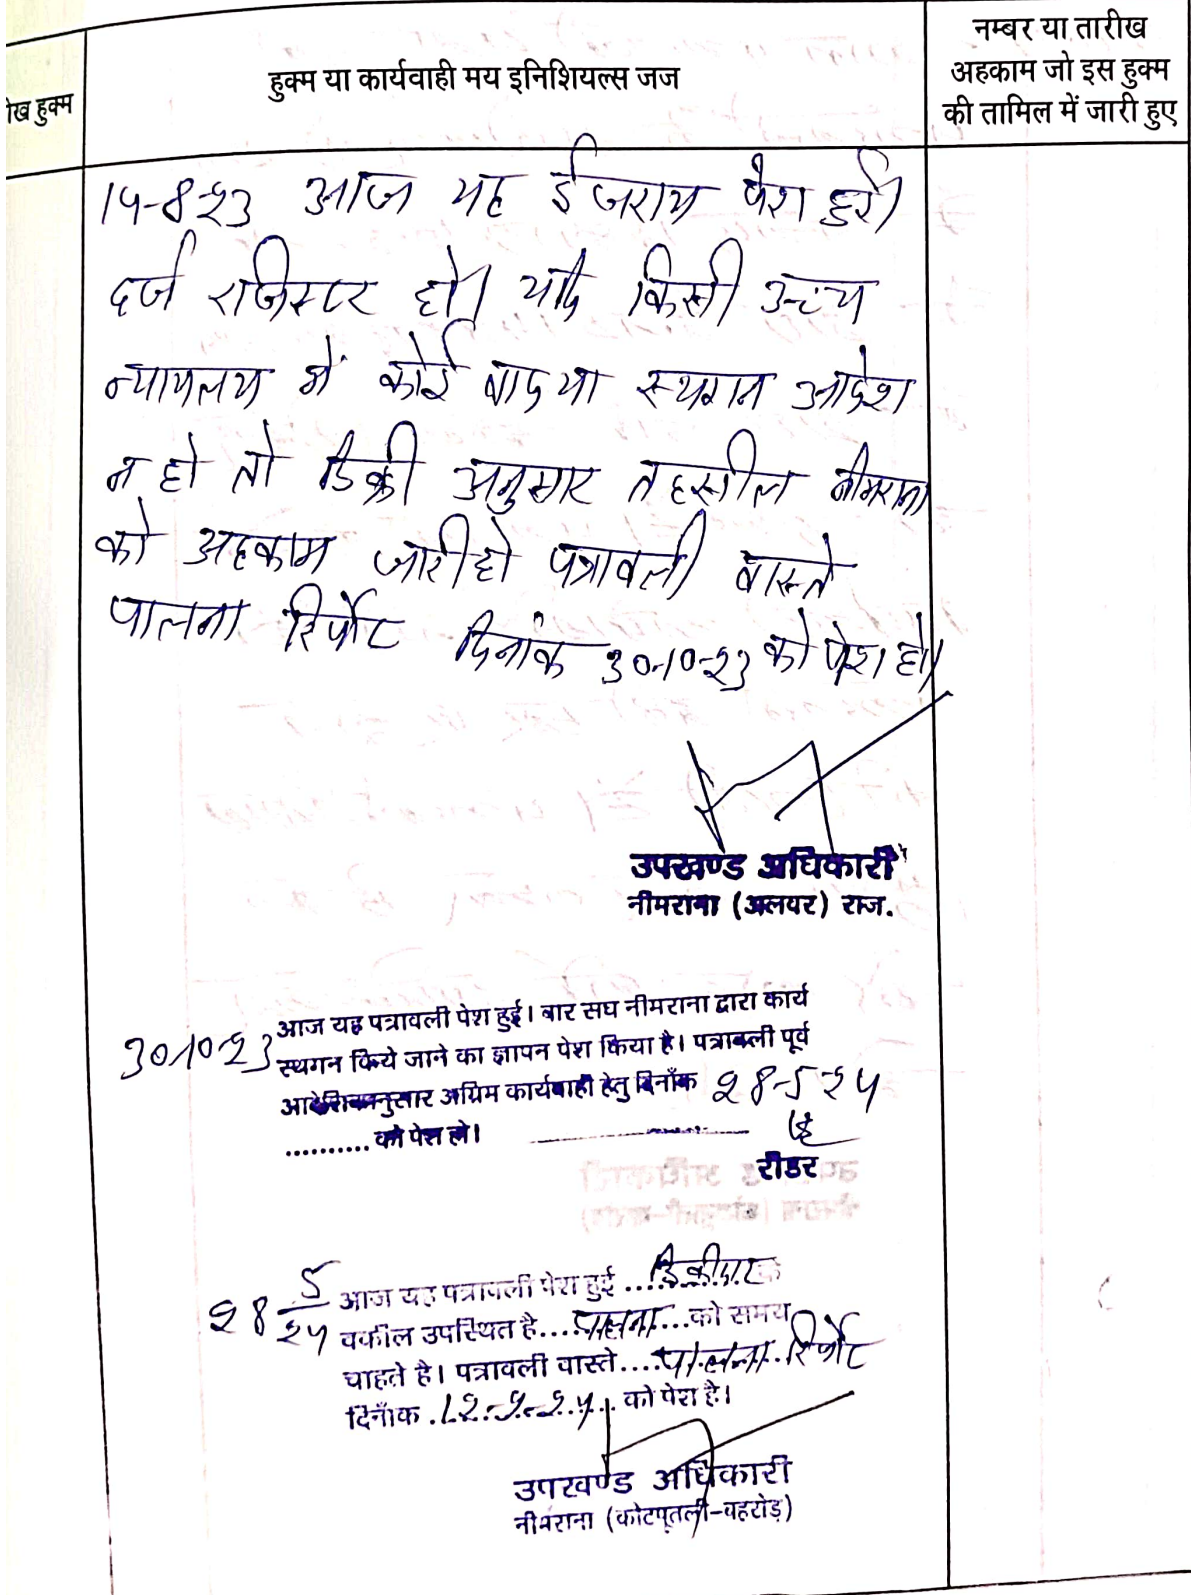 नम्बर या तारीख
अहकाम जो इस हुक्म
की तामिल में जारी हुए
हुक्म या कार्यवाही मय इनिशियल्स जज
ख हुक्म
14-8-23 आज यह ईजराय पेश हुई।
दर्ज रजिस्टर हो। यदि किसी उच्च
न्यायलय में कोई वाद या स्थगन आदेश
न हो तो डिक्री अनुसार तहसील नीमराना
को अहकाम जारी हो पत्रावली वास्ते
पालना रिर्पोट दिनांक 30-10-23 को पेश हो।
उपखण्ड अधिकारी
नीमराना (अलवर) राज.
30-10-23 आज यह पत्रावली पेश हुई। बार सघ नीमराना द्वारा कार्य
स्थगन किये जाने का ज्ञापन पेश किया है। पत्रावली पूर्व
आदेशिकानुसार अग्रिम कार्यवाही हेतु दिनाँक 28-5-24
.......... को पेश हो।
रीडर
28 5/24 आज यह पत्रावली पेश हुई ....डिक्रीदार
वकील उपस्थित है....पालना...को समय
चाहते है। पत्रावली वास्ते....पालना रिर्पोट
दिनाँक .12-9-24.. को पेश है।
उपखण्ड अधिकारी
नीमराना (कोटपूतली-बहरोड़)